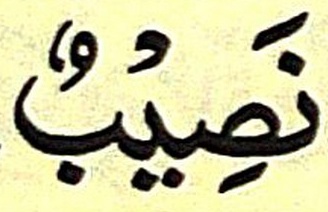 نَصِيْبٌ